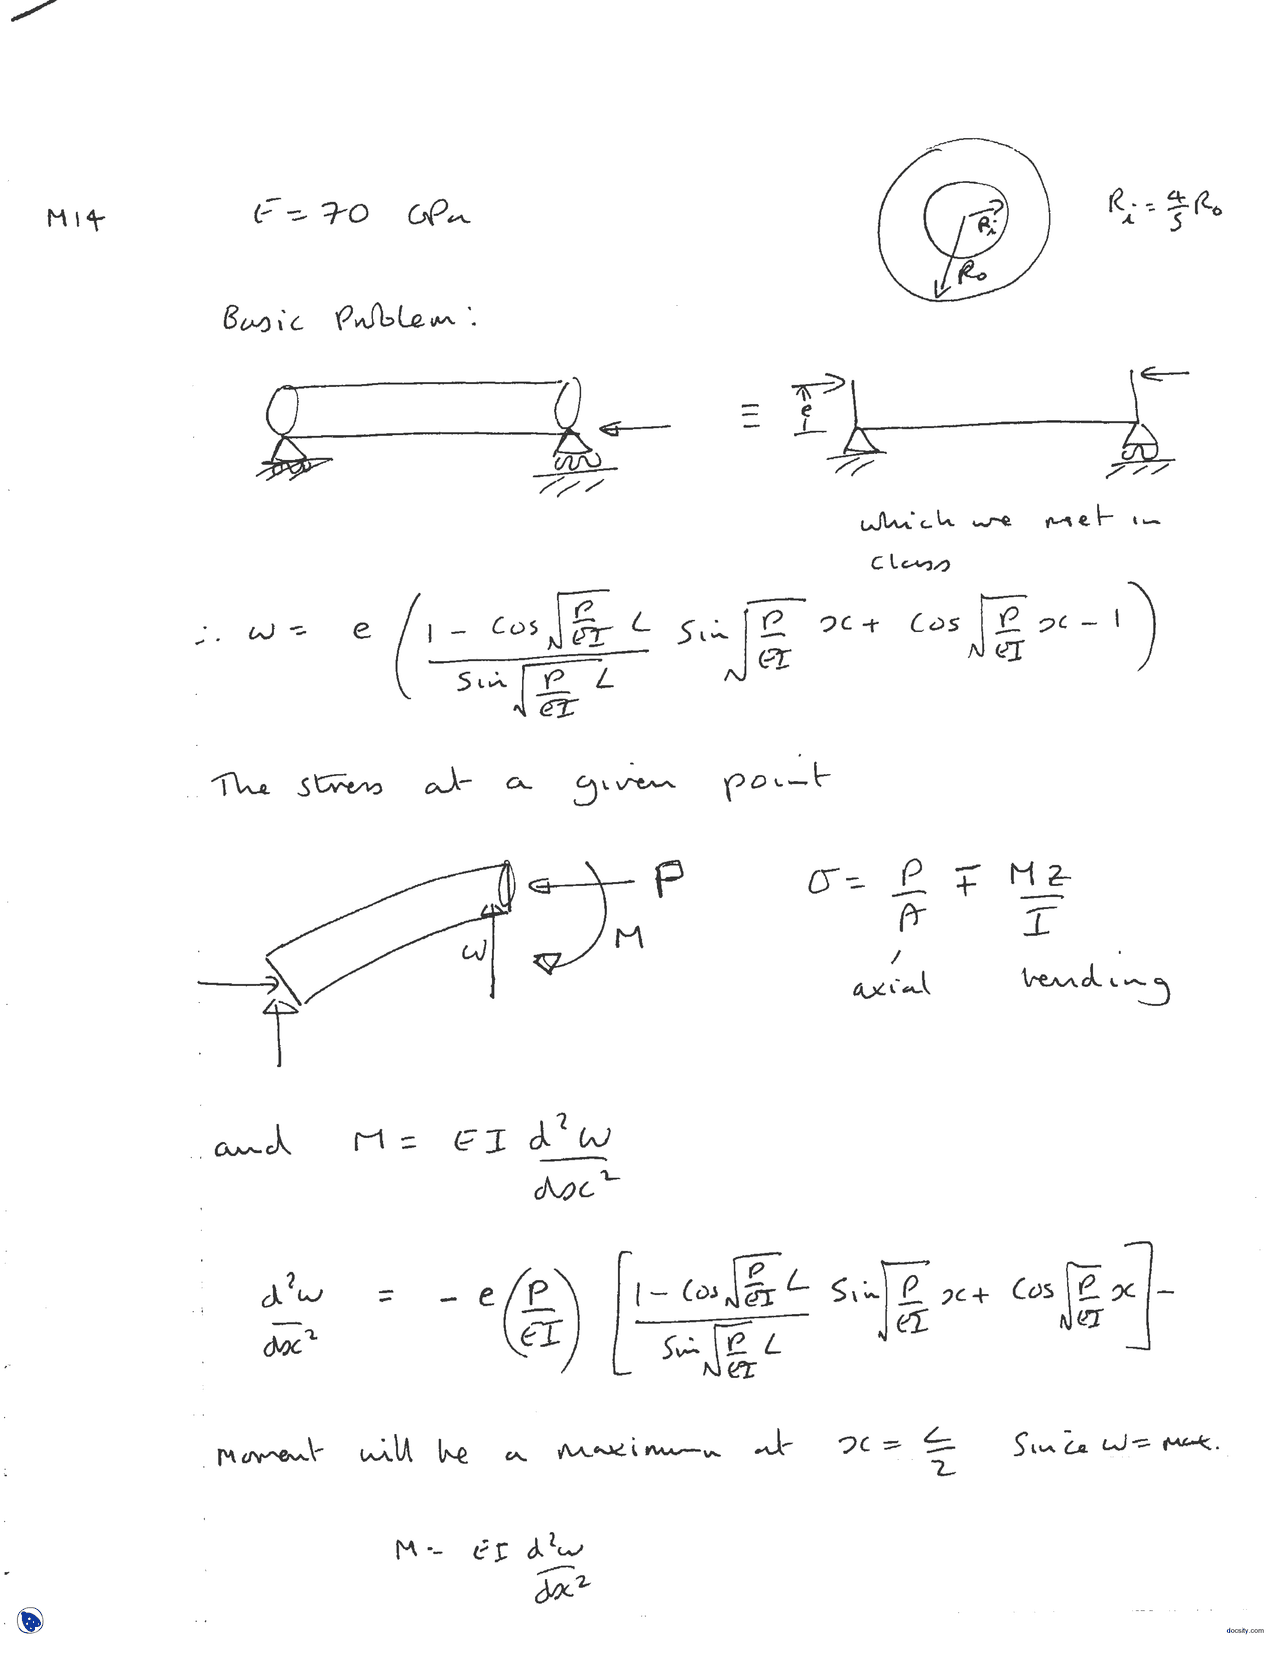 M14 E = 70 GPa R_i = 4/5 R_o
R_i
R_o
Basic Problem:
≡ e
which we met in
class
∴ w = e ( (1 - cos√(P/EI) L) / (sin√(P/EI) L) sin√(P/EI) x + cos√(P/EI) x - 1 )
The stress at a given point
P
M
w
σ = P/A ∓ Mz/I
axial bending
and M = EI d²w/dx²
d²w/dx² = - e (P/EI) [ (1 - cos√(P/EI) L) / (sin√(P/EI) L) sin√(P/EI) x + cos√(P/EI) x ] -
Moment will be a maximum at x = L/2 since w = max.
M = EI d²w/dx²
docsity.com